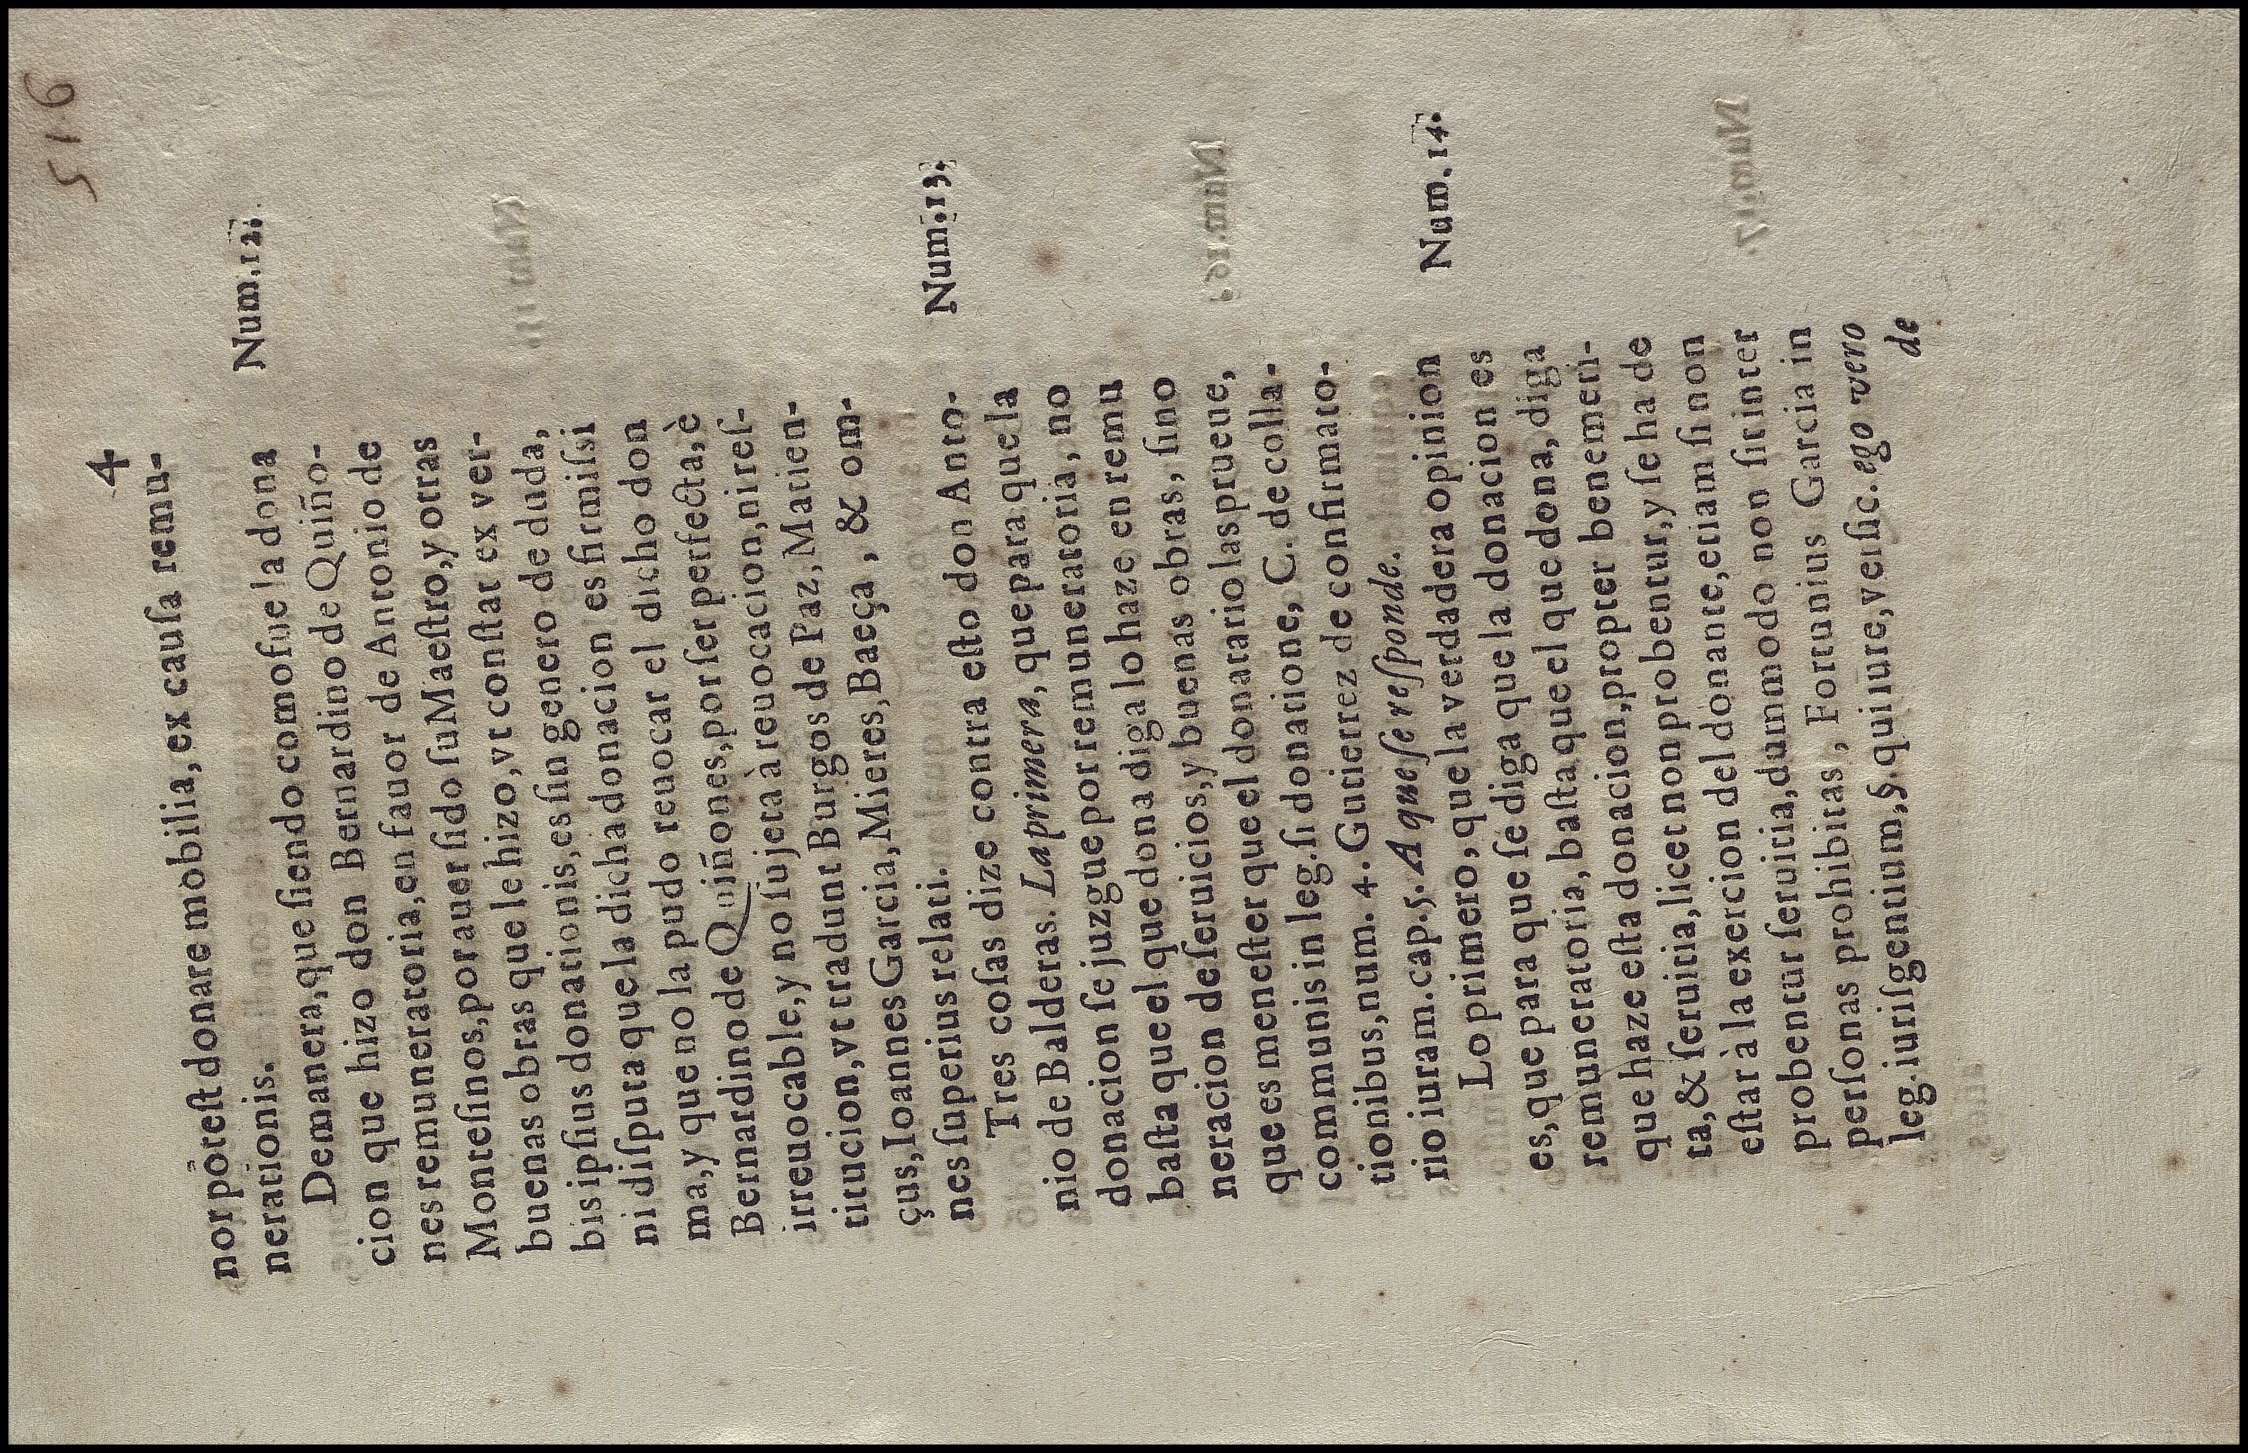 516
4
nor potest donare mobilia, ex causa remu-
nerationis.
Num.12.
De manera, que siendo como fue la dona
cion que hizo don Bernardino de Quiño-
nes remuneratoria, en fauor de Antonio de
Montesinos, por auer sido su Maestro, y otras
buenas obras que le hizo, vt constat ex ver-
bis ipsius donationis, es sin genero de duda,
ni disputa que la dicha donacion es firmissi
ma, y que no la pudo reuocar el dicho don
Bernardino de Quiñones, por ser perfecta, è
irreuocable, y no sujeta à reuocacion, ni res-
titucion, vt tradunt Burgos de Paz, Matien-
çus, Ioannes Garcia, Mieres, Baeça, & om-
nes superius relati.
Num.13.
Tres cosas dize contra esto don Anto-
nio de Balderas. La primera, que para que la
donacion se juzgue por remuneratoria, no
basta que el que dona diga lo haze en remu
neracion de seruicios, y buenas obras, sino
que es menester que el donatario las prueue,
communis in leg. si donatione, C. de colla-
tionibus, num. 4. Gutierrez de confirmato-
rio iuram. cap. 5. A que se responde.
Num.14.
Lo primero, que la verdadera opinion
es, que para que se diga que la donacion es
remuneratoria, basta que el que dona, diga
que haze esta donacion, propter benemeri-
ta, & seruitia, licet non probentur, y se ha de
estar à la exercion del donante, etiam si non
probentur seruitia, dummodo non sit inter
personas prohibitas, Fortunius Garcia in
leg. iurisgentium, §. qui iure, versic. ego vero
de